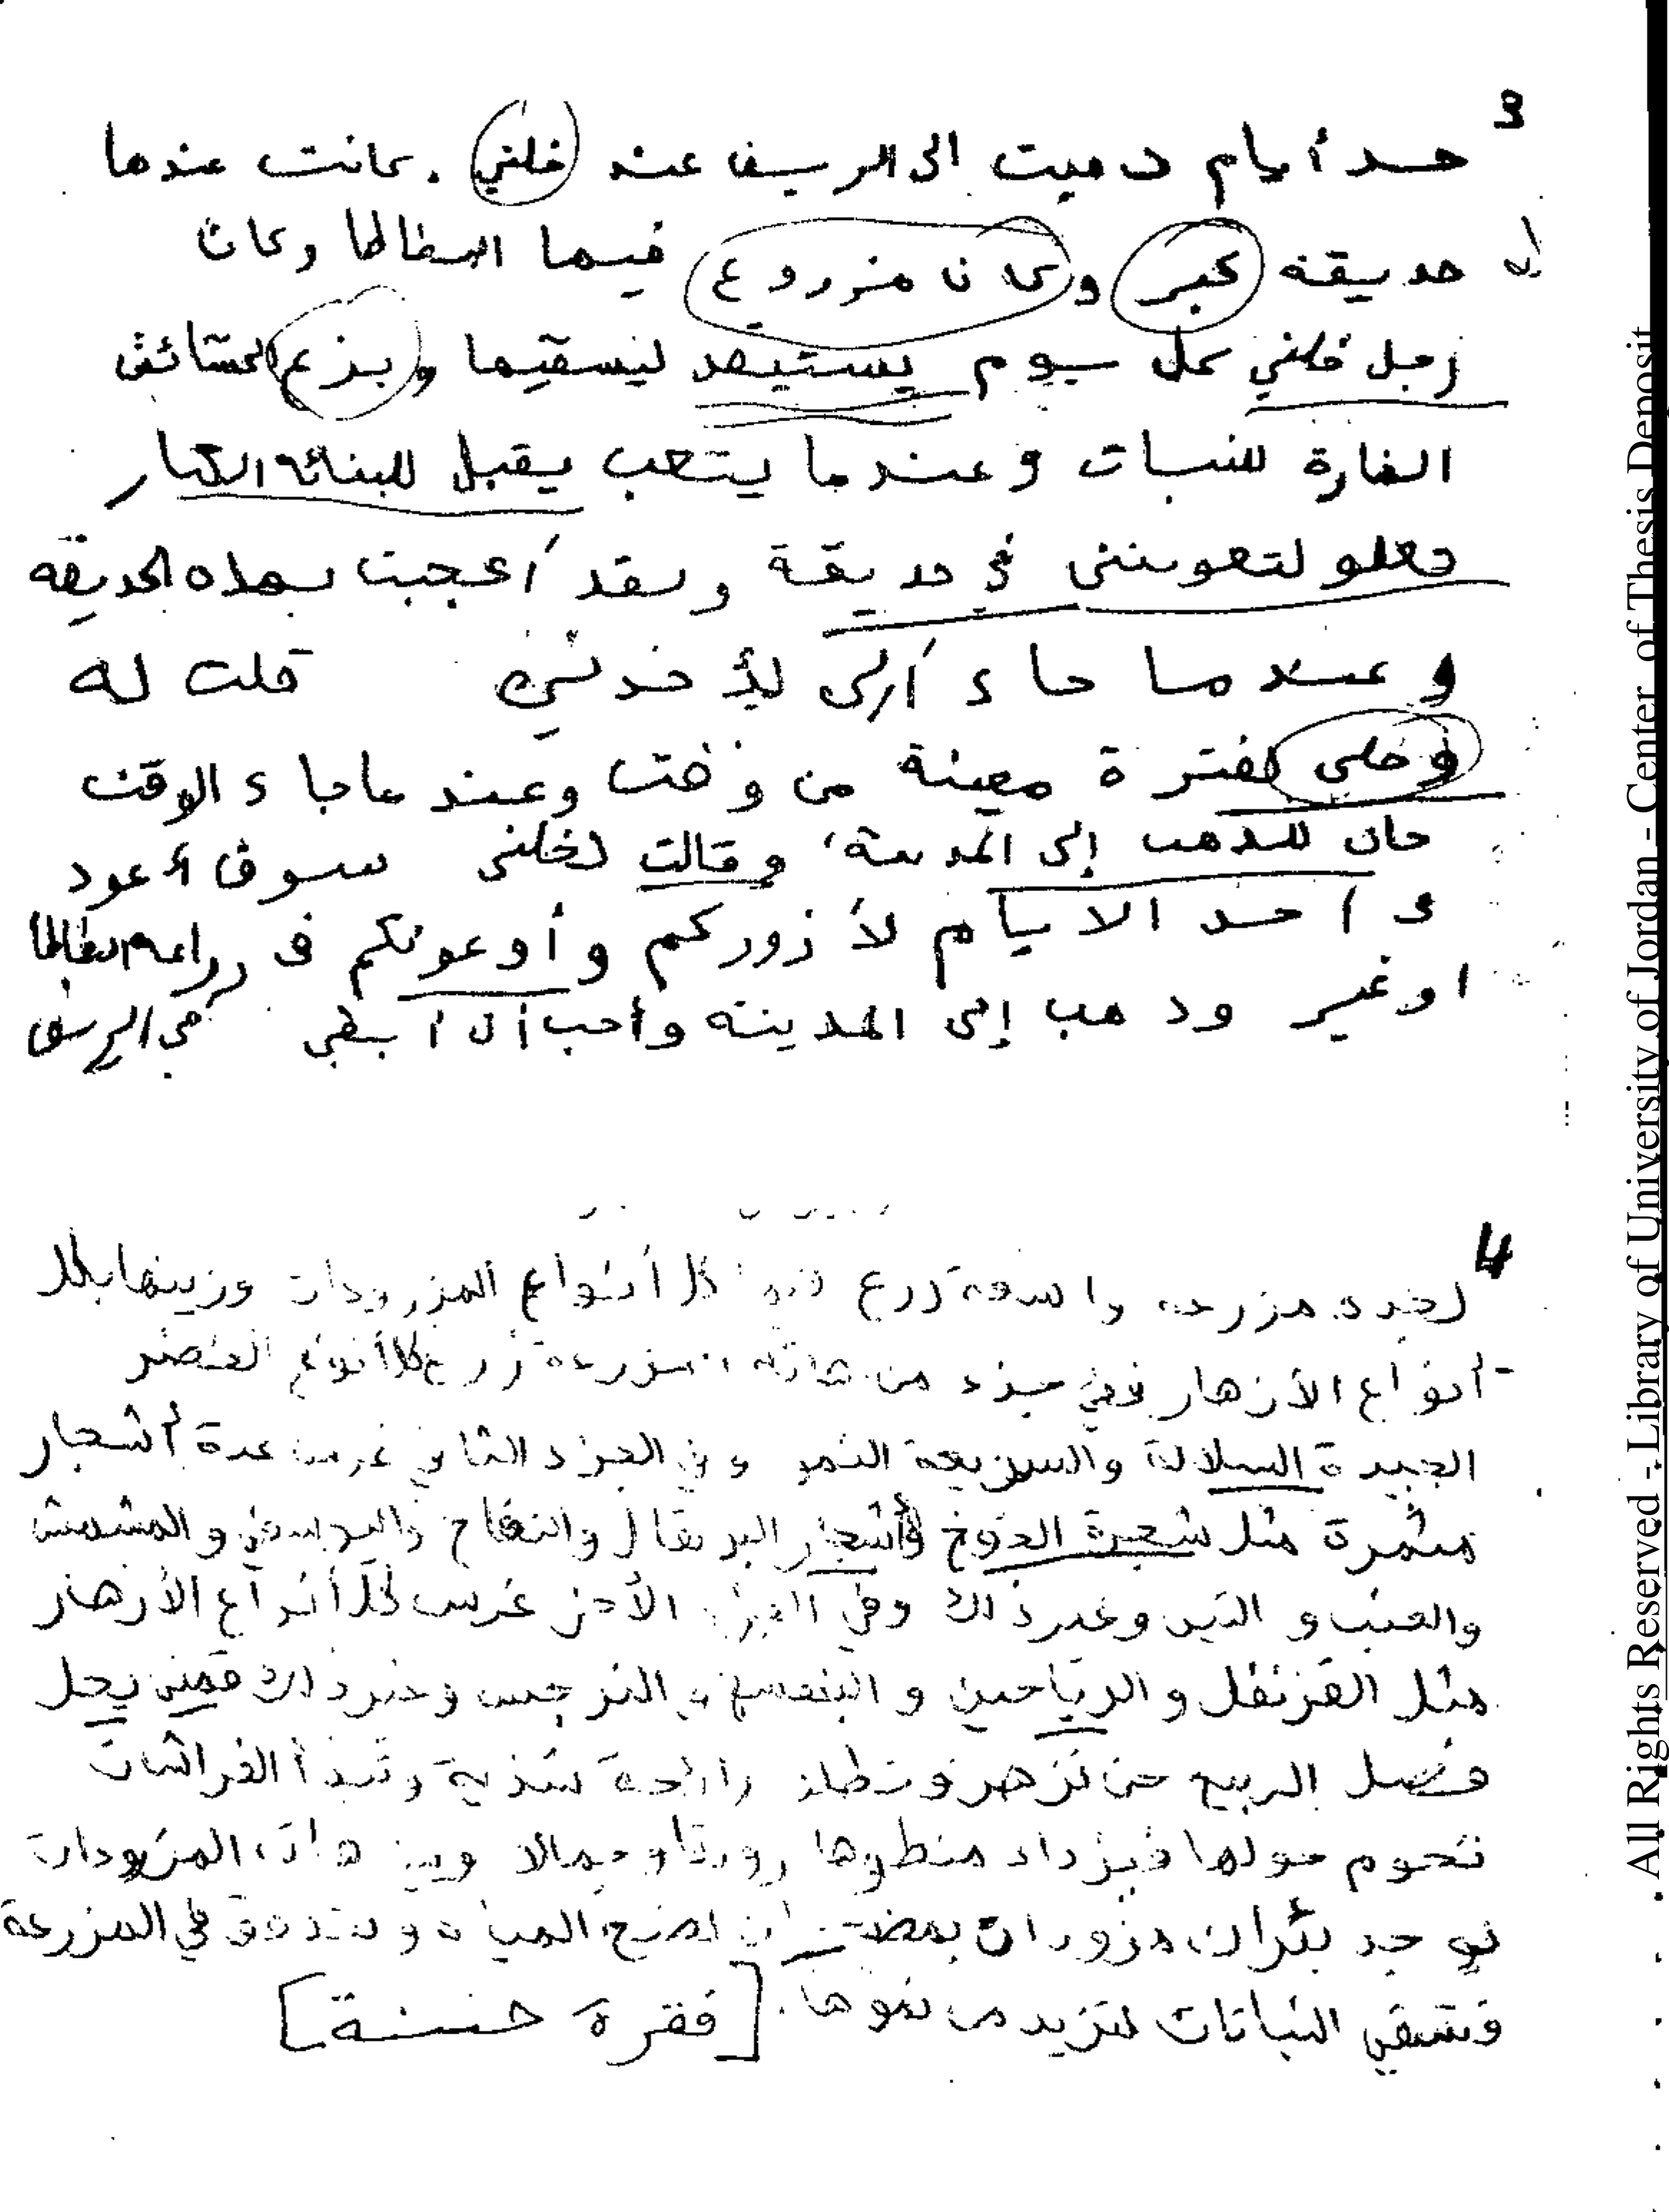 3
حد أيام دهبت الى الريف عند خلني . كانت عندها
حديقة كبر وكان مزروع فيها البطاطا وكان
زجل خلني كل يوم يستيهد ليسقيها وبزع الحشائش
الضارة للنبات وعندما يتعب يقبل للبنائه الكبار
تعلو لتعويننى في حديقة ولقد أعجبت بهذه الحديقة
وعندما جاء أبى لأخدني قلت له
وخلى لفترة معينة من وقت وعند ماجاء الوقت
حان للدهب إلى المدينة، وقالت لخلنى سوف أعود
فى احد الايام لأزوركم وأوعونكم فى زراعة البطاطا
اوغير ودهب إلى المدينة وأحب أن أبقى في الريف
4
لجدد مزرعه واسعة زرع فيها كل أنواع المزروعات وزينها بكل
- أنواع الأزهار ففي جزء من هاته المزرعة زرع كل أنواع الخضر
الجيدة السلالة والسريعة النمو وفي الجزء الثاني غرست عدة أشجار
مثمرة مثل شجرة الخوخ وأشجار البرتقال والتفاح والبوسفي والمشمش
والعنب و التين وغير ذالك وفي الجزء الأخر غرس كل أنواع الأزهار
مثل القرنفل و الرياحين و البنفسج و النرجس وغير ذالك فمتى يحل
فصل الربيع حتى تزهر وتطلق رائحة شذية وتبدأ الفراشات
تحوم حولها فيزداد منظوها رونقا وجمالا وبين هات المزروعات
توجد بئران مزوران بمضخ لضخ المياه و تتدفق في المزرعة
فتسقي النباتات لتزيد من نموها. [فقرة حسنة]
All Rights Reserved - Library of University of Jordan - Center of Thesis Deposit